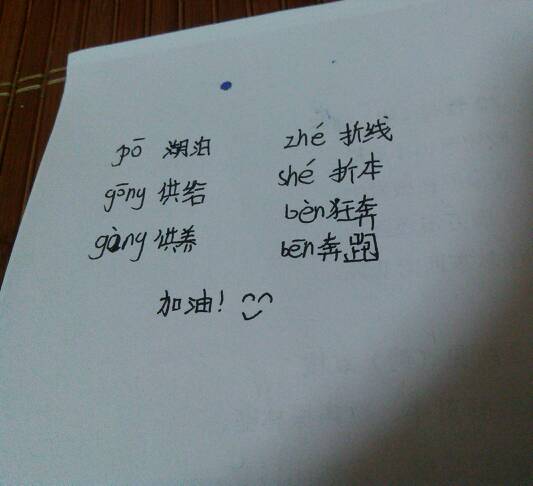 pō 湖泊
gōng 供给
gòng 供养
zhé 折线
shé 折本
bèn 狂奔
bēn 奔跑
加油!